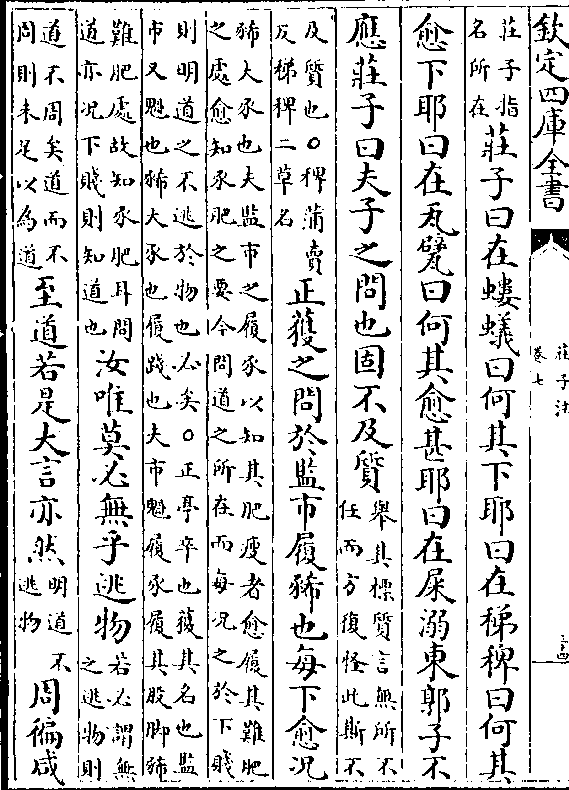 欽定四庫全書
莊子注
卷七
三四
莊子指
名所在
莊子曰在螻蟻曰何其下耶曰在稊稗曰何其
愈下耶曰在瓦甓曰何其愈甚耶曰在屎溺東郭子不
應莊子曰夫子之問也固不及質
舉其標質言無所不
任而方復怪此斯不
及質也○稗蒲賣
反稊稗二草名
正獲之問於監市履狶也每下愈况
狶大豕也夫監市之履豕以知其肥瘦者愈履其難肥
之處愈知豕肥之要今問道之所在而每况之於下賤
則明道之不逃於物也必矣○正亭卒也獲其名也監
市又魁也狶大豕也履踐也大市魁履豕履其股脚狶
難肥處故知豕肥耳問
道亦况下賤則知道也
汝唯莫必無乎逃物
若必謂無
之逃物則
道不周矣道而不
周則未足以為道
至道若是大言亦然
明道不
逃物
周徧咸